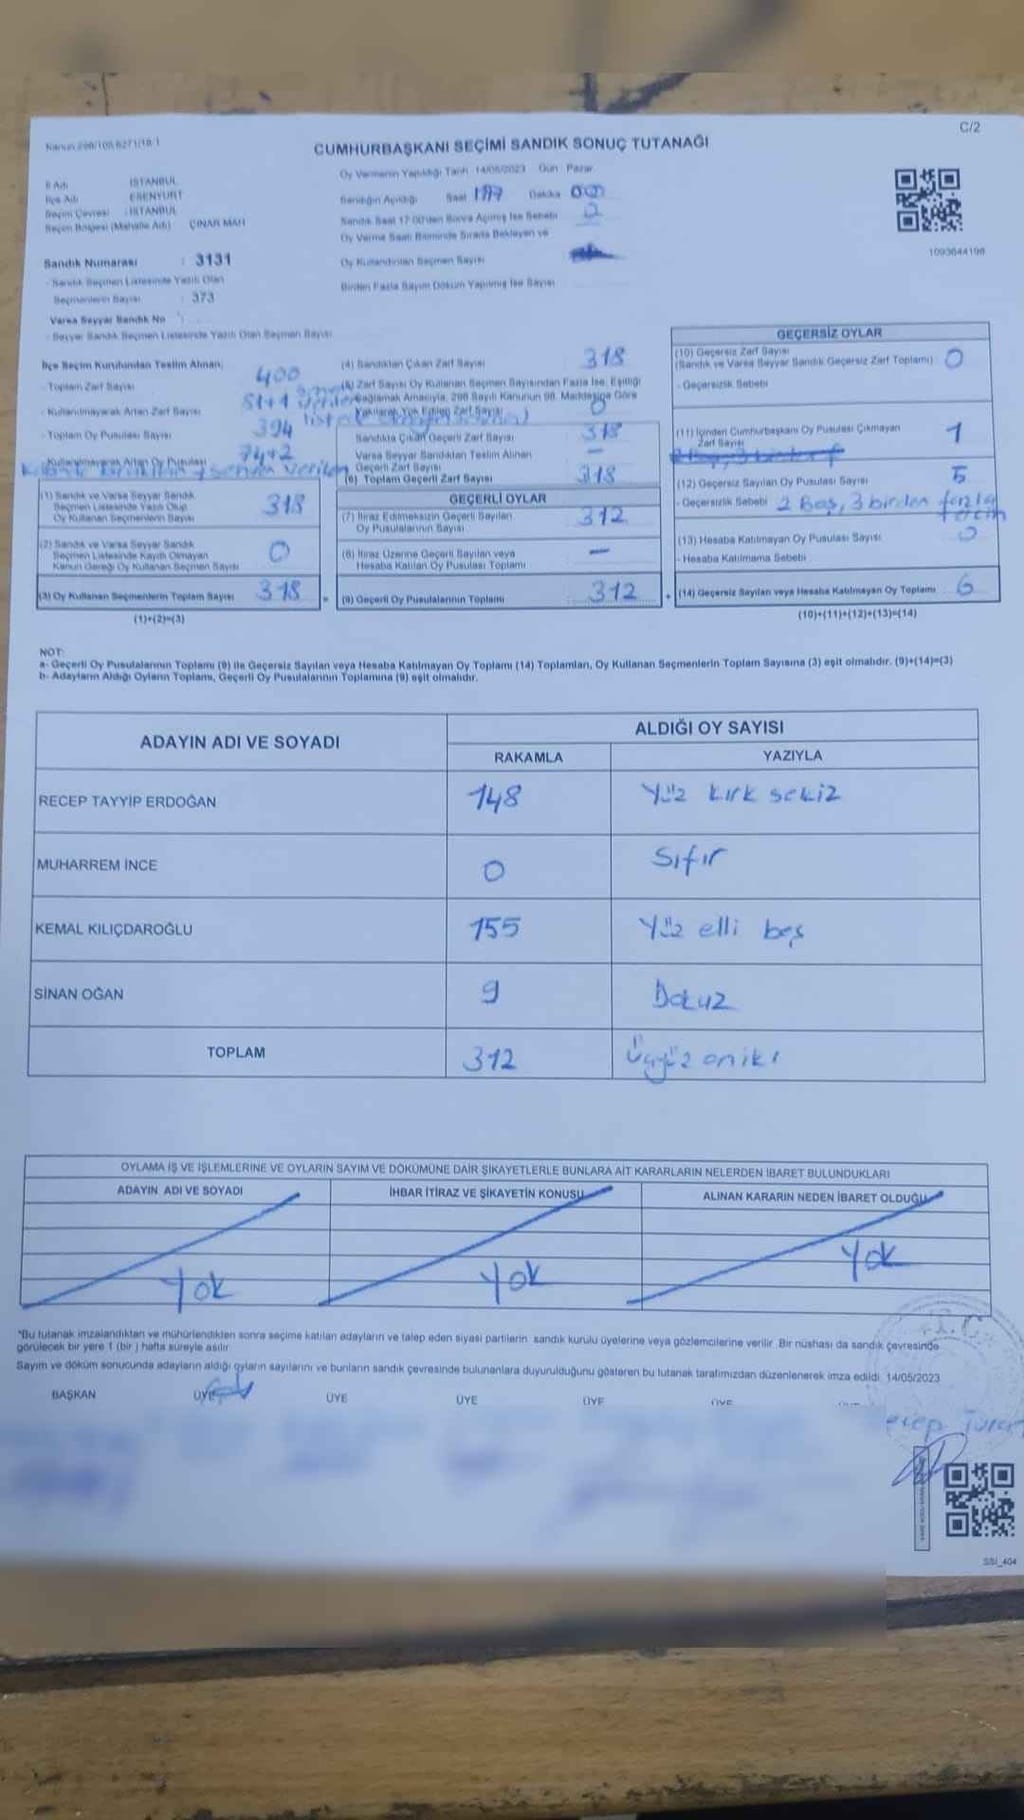 C/2
Kanun 298/105,6271/18.1
CUMHURBAŞKANI SEÇİMİ SANDIK SONUÇ TUTANAĞI
İl Adı : İSTANBUL
İlçe Adı : ESENYURT
Seçim Çevresi : İSTANBUL
Seçim Bölgesi (Mahalle Adı) ÇINAR MAH
Sandık Numarası : 3131
- Sandık Seçmen Listesinde Yazılı Olan
Seçmenlerin Sayısı : 373
Varsa Seyyar Sandık No :
- Seyyar Sandık Seçmen Listesinde Yazılı Olan Seçmen Sayısı
Oy Vermenin Yapıldığı Tarih : 14/05/2023 Gün : Pazar
Sandığın Açıldığı Saat Dakika
Sandık Saat 17:00'den Sonra Açılmış İse Sebebi
Oy Verme Saati Bitiminde Sırada Bekleyen ve
Oy Kullandırılan Seçmen Sayısı
Birden Fazla Sayım Döküm Yapılmış İse Sayısı
1093644198
İlçe Seçim Kurulundan Teslim Alınan;
- Toplam Zarf Sayısı 400
- Kullanılmayarak Artan Zarf Sayısı
- Toplam Oy Pusulası Sayısı 394
- Kullanılmayarak Artan Oy Pusulası 74+2
(1) Sandık ve Varsa Seyyar Sandık
Seçmen Listesinde Yazılı Olup
Oy Kullanan Seçmenlerin Sayısı 318
(2) Sandık ve Varsa Seyyar Sandık
Seçmen Listesinde Kayıtlı Olmayan
Kanun Gereği Oy Kullanan Seçmen Sayısı 0
(3) Oy Kullanan Seçmenlerin Toplam Sayısı 318
(1)+(2)=(3)
(4) Sandıktan Çıkan Zarf Sayısı 318
(5) Zarf Sayısı Oy Kullanan Seçmen Sayısından Fazla İse, Eşitliği
Sağlamak Amacıyla, 298 Sayılı Kanunun 98. Maddesine Göre
Yakılarak Yok Edilen Zarf Sayısı 0
Sandıkta Çıkan Geçerli Zarf Sayısı 318
Varsa Seyyar Sandıktan Teslim Alınan
Geçerli Zarf Sayısı —
(6) Toplam Geçerli Zarf Sayısı 318
GEÇERLİ OYLAR
(7) İtiraz Edilmeksizin Geçerli Sayılan
Oy Pusulalarının Sayısı 312
(8) İtiraz Üzerine Geçerli Sayılan veya
Hesaba Katılan Oy Pusulası Toplamı —
(9) Geçerli Oy Pusulalarının Toplamı 312
GEÇERSİZ OYLAR
(10) Geçersiz Zarf Sayısı
(Sandık ve Varsa Seyyar Sandık Geçersiz Zarf Toplamı) 0
- Geçersizlik Sebebi
(11) İçinden Cumhurbaşkanı Oy Pusulası Çıkmayan
Zarf Sayısı 1
(12) Geçersiz Sayılan Oy Pusulası Sayısı 5
- Geçersizlik Sebebi 2 Boş, 3 birden fazla
(13) Hesaba Katılmayan Oy Pusulası Sayısı 0
- Hesaba Katılmama Sebebi
(14) Geçersiz Sayılan veya Hesaba Katılmayan Oy Toplamı 6
(10)+(11)+(12)+(13)=(14)
NOT:
a- Geçerli Oy Pusulalarının Toplamı (9) ile Geçersiz Sayılan veya Hesaba Katılmayan Oy Toplamı (14) Toplamları, Oy Kullanan Seçmenlerin Toplam Sayısına (3) eşit olmalıdır. (9)+(14)=(3)
b- Adayların Aldığı Oyların Toplamı, Geçerli Oy Pusulalarının Toplamına (9) eşit olmalıdır.
ADAYIN ADI VE SOYADI
ALDIĞI OY SAYISI
RAKAMLA YAZIYLA
RECEP TAYYİP ERDOĞAN 148 Yüz kırk sekiz
MUHARREM İNCE 0 Sıfır
KEMAL KILIÇDAROĞLU 155 Yüz elli beş
SİNAN OĞAN 9 Dokuz
TOPLAM 312 Üçyüz oniki
OYLAMA İŞ VE İŞLEMLERİNE VE OYLARIN SAYIM VE DÖKÜMÜNE DAİR ŞİKAYETLERLE BUNLARA AİT KARARLARIN NELERDEN İBARET BULUNDUKLARI
ADAYIN ADI VE SOYADI İHBAR İTİRAZ VE ŞİKAYETİN KONUSU ALINAN KARARIN NEDEN İBARET OLDUĞU
Yok Yok Yok
*Bu tutanak imzalandıktan ve mühürlendikten sonra seçime katılan adayların ve talep eden siyasi partilerin sandık kurulu üyelerine veya gözlemcilerine verilir. Bir nüshası da sandık çevresinde
görülecek bir yere 1 (bir ) hafta süreyle asılır.
Sayım ve döküm sonucunda adayların aldığı oyların sayılarını ve bunların sandık çevresinde bulunanlara duyurulduğunu gösteren bu tutanak tarafımızdan düzenlenerek imza edildi. 14/05/2023
BAŞKAN ÜYE ÜYE ÜYE ÜYE ÜYE
SSI_404